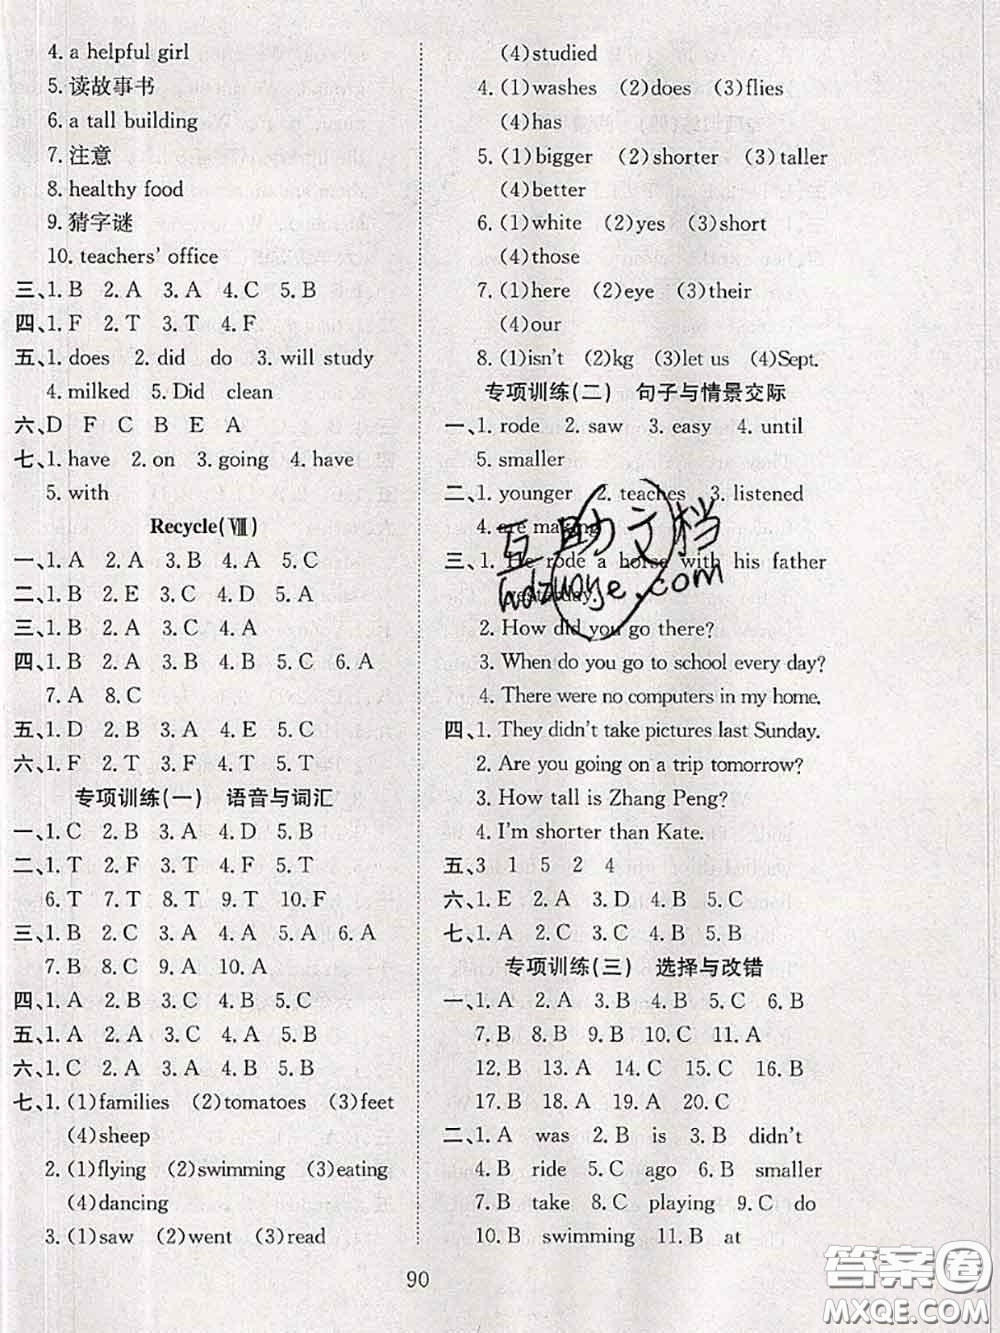 4. a helpful girl
5. 读故事书
6. a tall building
7. 注意
8. healthy food
9. 猜字谜
10. teachers' office
三、1. B 2. A 3. A 4. C 5. B
四、1. F 2. T 3. T 4. F
五、1. does 2. did do 3. will study
4. milked 5. Did clean
六、D F C B E A
七、1. have 2. on 3. going 4. have
5. with
Recycle(Ⅷ)
一、1. A 2. A 3. B 4. A 5. C
二、1. B 2. E 3. C 4. D 5. A
三、1. B 2. A 3. C 4. A
四、1. B 2. A 3. A 4. B 5. C 6. A
7. A 8. C
五、1. D 2. B 3. A 4. E 5. C
六、1. F 2. T 3. F 4. T 5. T
专项训练(一) 语音与词汇
一、1. C 2. B 3. A 4. D 5. B
二、1. T 2. F 3. T 4. F 5. T
6. T 7. T 8. T 9. T 10. F
三、1. B 2. C 3. A 4. A 5. A 6. A
7. B 8. C 9. A 10. A
四、1. C 2. A 3. C 4. B 5. C
五、1. B 2. A 3. C 4. A 5. B
六、1. C 2. A 3. A 4. B 5. B 6. B
七、1. (1)families (2)tomatoes (3)feet
(4)sheep
2. (1)flying (2)swimming (3)eating
(4)dancing
3. (1)saw (2)went (3)read
(4)studied
4. (1)washes (2)does (3)flies
(4)has
5. (1)bigger (2)shorter (3)taller
(4)better
6. (1)white (2)yes (3)short
(4)those
7. (1)here (2)eye (3)their
(4)our
8. (1)isn't (2)kg (3)let us (4)Sept.
专项训练(二) 句子与情景交际
一、1. rode 2. saw 3. easy 4. until
5. smaller
二、1. younger 2. teaches 3. listened
4. are making
三、1. He rode a horse with his father
yesterday.
2. How did you go there?
3. When do you go to school every day?
4. There were no computers in my home.
四、1. They didn't take pictures last Sunday.
2. Are you going on a trip tomorrow?
3. How tall is Zhang Peng?
4. I'm shorter than Kate.
五、3 1 5 2 4
六、1. E 2. A 3. D 4. B 5. C
七、1. A 2. C 3. C 4. B 5. B
专项训练(三) 选择与改错
一、1. A 2. A 3. B 4. A 5. C 6. B
7. B 8. B 9. B 10. C 11. A
12. B 13. B 14. A 15. B 16. B
17. B 18. A 19. A 20. C
二、1. A was 2. B is 3. B didn't
4. B ride 5. C ago 6. B smaller
7. B take 8. C playing 9. C do
10. B swimming 11. B at
90
互助文档
hdzuoye.com
答案圈
MXQE.COM